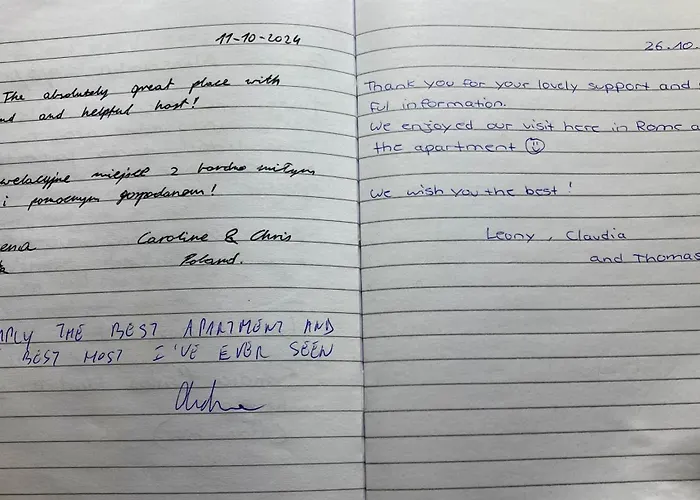 11-10-2024
The absolutely great place with
and helpful host!
miejsce z bardzo miłym
i pomocnym gospodarzem!
Caroline & Chris
Poland.
THE BEST APARTMENT AND
BEST HOST I'VE EVER SEEN
26.10.
Thank you for your lovely support and
ful information.
We enjoyed our visit here in Rome
the apartment ☺
We wish you the best!
Leony, Claudia
and Thomas